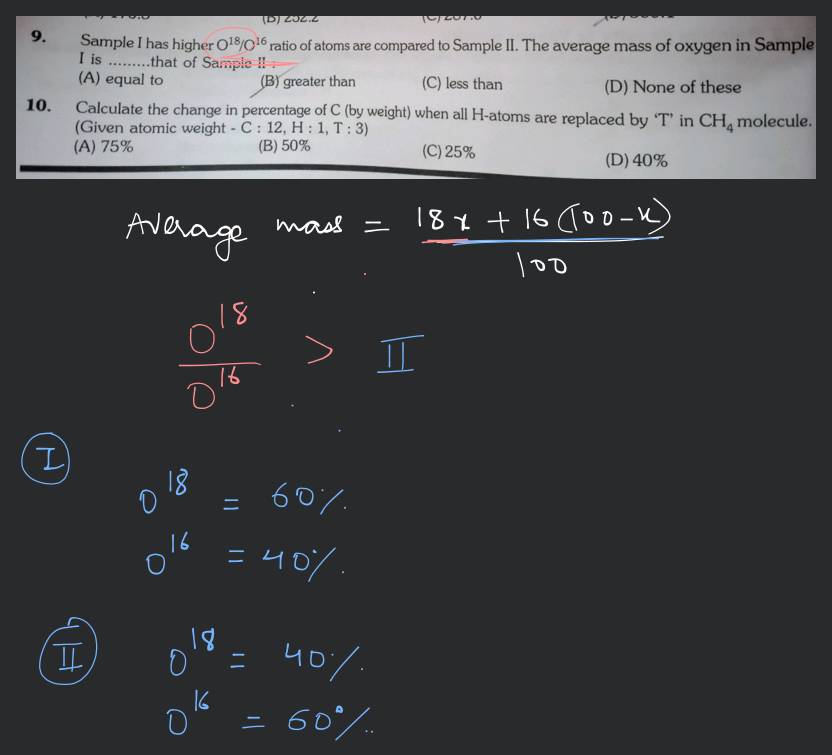 (B) 252.2
9. Sample I has higher O¹⁸/O¹⁶ ratio of atoms are compared to Sample II. The average mass of oxygen in Sample
I is .........that of Sample II .
(A) equal to (B) greater than (C) less than (D) None of these
10. Calculate the change in percentage of C (by weight) when all H-atoms are replaced by 'T' in CH₄ molecule.
(Given atomic weight - C : 12, H : 1, T : 3)
(A) 75% (B) 50% (C) 25% (D) 40%
Average mass = 18x + 16(100-x)
100
O¹⁸
O¹⁶ > II
I
O¹⁸ = 60%.
O¹⁶ = 40%.
II O¹⁸ = 40%.
O¹⁶ = 60%.